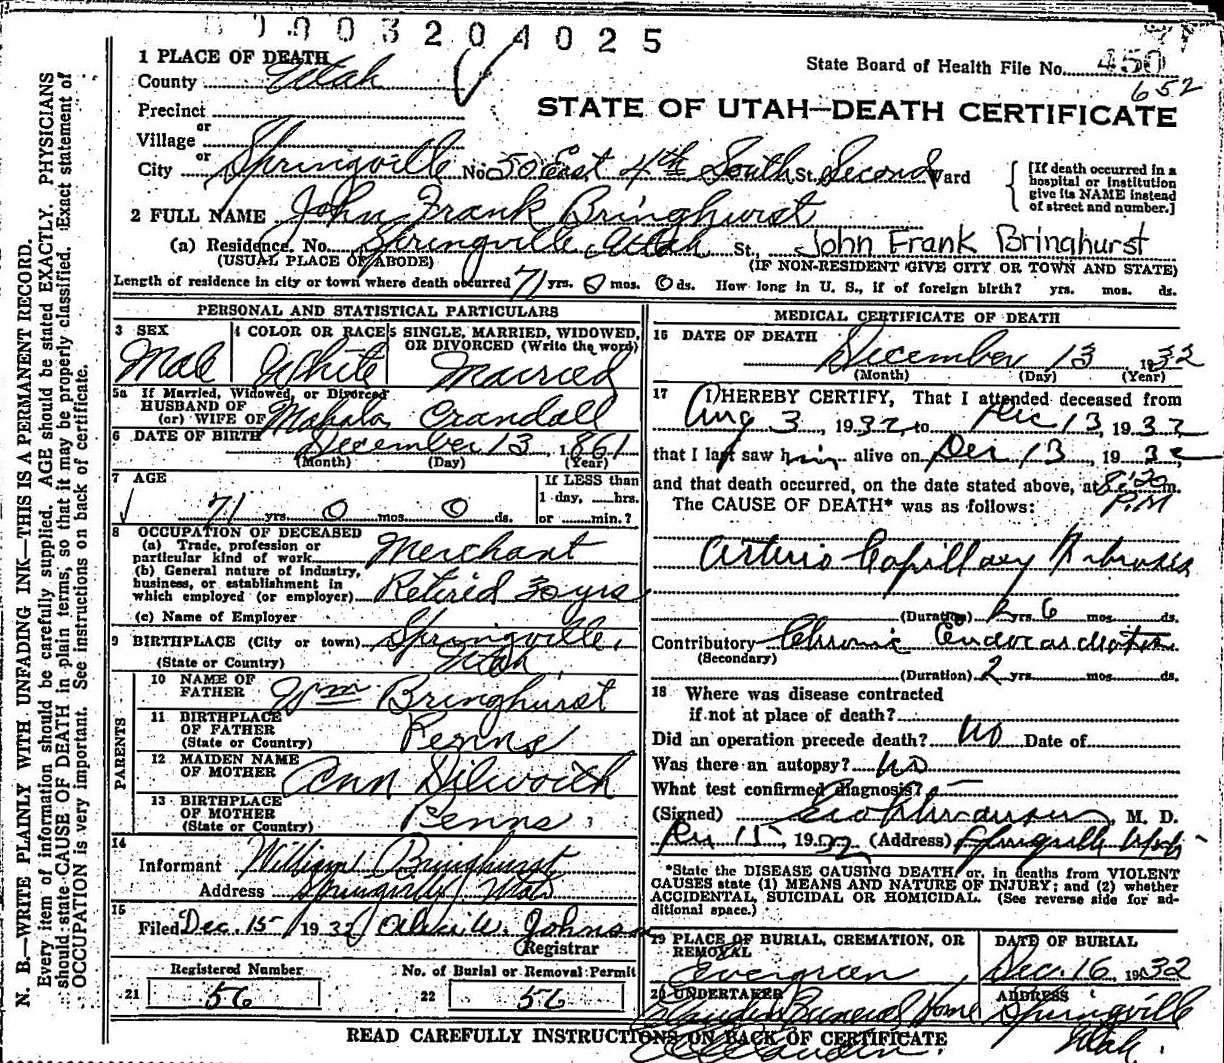 0 9 0 3 2 0 4 0 2 5
1 PLACE OF DEATH
County Utah
State Board of Health File No. 450
652
Precinct
STATE OF UTAH—DEATH CERTIFICATE
or
Village
or
City Springville No. 50 East 4th South St. Second Ward
[If death occurred in a hospital or institution give its NAME instead of street and number.]
2 FULL NAME John Frank Bringhurst
(a) Residence. No. Springville Utah St., John Frank Bringhurst
(USUAL PLACE OF ABODE) (IF NON-RESIDENT GIVE CITY OR TOWN AND STATE)
Length of residence in city or town where death occurred 71 yrs. 0 mos. 0 ds. How long in U. S., if of foreign birth? yrs. mos. ds.
PERSONAL AND STATISTICAL PARTICULARS
3 SEX Male
4 COLOR OR RACE White
5 SINGLE, MARRIED, WIDOWED, OR DIVORCED (Write the word) Married
5a If Married, Widowed, or Divorced
HUSBAND OF
(or) WIFE OF Mahala Crandall
6 DATE OF BIRTH December 13, 1861
(Month) (Day) (Year)
7 AGE
71 yrs. 0 mos. 0 ds.
If LESS than
1 day, hrs.
or min.?
8 OCCUPATION OF DECEASED
(a) Trade, profession or
particular kind of work Merchant
(b) General nature of Industry,
business, or establishment in
which employed (or employer) Retired 30 yrs
(c) Name of Employer
9 BIRTHPLACE (City or town) Springville,
(State or Country) Utah
PARENTS
10 NAME OF
FATHER Wm Bringhurst
11 BIRTHPLACE
OF FATHER
(State or Country) Penns
12 MAIDEN NAME
OF MOTHER Ann Dilworth
13 BIRTHPLACE
OF MOTHER
(State or Country) Penns
14
Informant William Bringhurst
Address Springville Utah
15
Filed Dec. 15 1932 W. Johnson
Registrar
Registered Number
21 56
No. of Burial or Removal Permit
22 56
MEDICAL CERTIFICATE OF DEATH
16 DATE OF DEATH
December 13 1932
(Month) (Day) (Year)
17 I HEREBY CERTIFY, That I attended deceased from
Aug 3, 1932, to Dec 13, 1932
that I last saw him alive on Dec 13, 1932
and that death occurred, on the date stated above, at 8:20 m.
P.M
The CAUSE OF DEATH* was as follows:
Arterio Capillary Fibrosis
(Duration) 2 yrs 6 mos. ds.
Contributory Chronic Endocarditis
(Secondary)
(Duration) 2 yrs. mos. ds.
18 Where was disease contracted
if not at place of death?
Did an operation precede death? no Date of
Was there an autopsy? no
What test confirmed diagnosis? —
(Signed) , M. D.
Dec 15, 1932 (Address) Springville Utah
*State the DISEASE CAUSING DEATH, or, in deaths from VIOLENT
CAUSES state (1) MEANS AND NATURE OF INJURY; and (2) whether
ACCIDENTAL, SUICIDAL OR HOMICIDAL. (See reverse side for ad-
ditional space.)
19 PLACE OF BURIAL, CREMATION, OR
REMOVAL
Evergreen
DATE OF BURIAL
Dec. 16 1932
20 UNDERTAKER
Claudin Funeral Home
ADDRESS
Springville
Utah.
READ CAREFULLY INSTRUCTIONS ON BACK OF CERTIFICATE
N. B.—WRITE PLAINLY WITH UNFADING INK—THIS IS A PERMANENT RECORD.
Every item of information should be carefully supplied. AGE should be stated EXACTLY. PHYSICIANS
should state CAUSE OF DEATH in plain terms, so that it may be properly classified. Exact statement of
OCCUPATION is very important. See instructions on back of certificate.